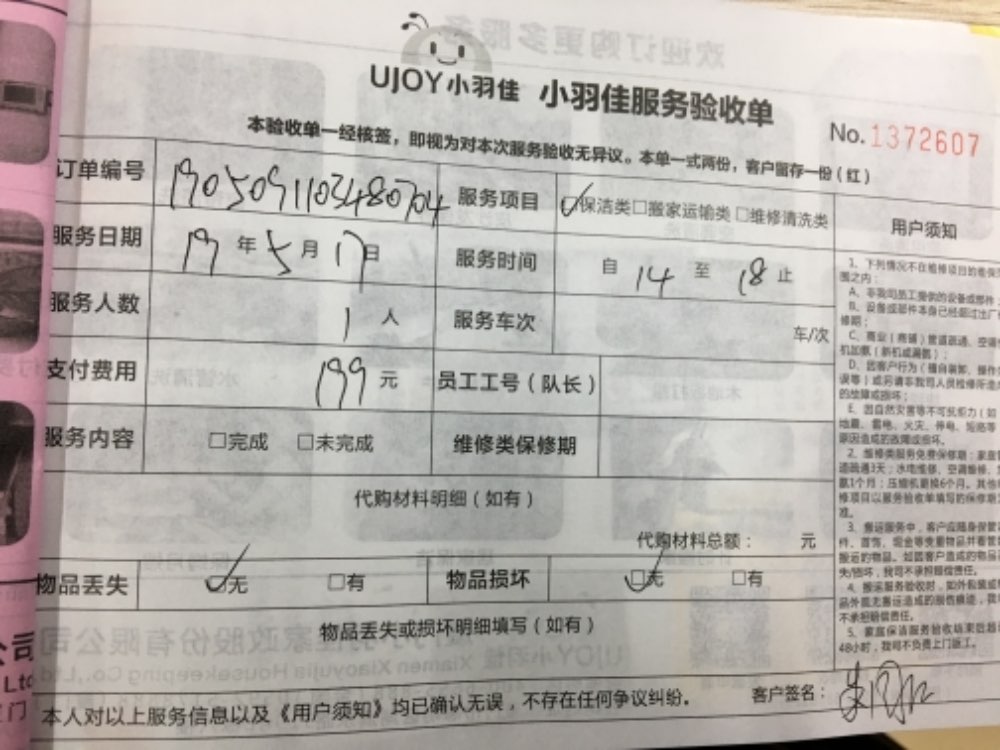 UJOY小羽佳 小羽佳服务验收单
No.1372607
本验收单一经核签，即视为对本次服务验收无异议。本单一式两份，客户留存一份（红）
订单编号 1905091103480704 服务项目 ☑保洁类□搬家运输类□维修清洗类
服务日期 19年5月17日 服务时间 自14至18止
服务人数 1人 服务车次 车/次
支付费用 199元 员工工号（队长）
服务内容 □完成 □未完成 维修类保修期
代购材料明细（如有）
代购材料总额： 元
物品丢失 ☑无 □有 物品损坏 ☑无 □有
物品丢失或损坏明细填写（如有）
本人对以上服务信息以及《用户须知》均已确认无误，不存在任何争议纠纷。 客户签名：
用户须知
1、下列情况不在维修项目的维保范
围之内：
A、非我司员工提供的设备或部件
B、设备或部件本身已经超过出厂
修期；
C、商业（商铺）管道疏通、空调
机加氨（新机或漏氨）；
D、因客户行为（擅自装卸、操作
误等）或另请非我司人员检修所造
的故障或损坏；
E、因自然灾害等不可抗力（如
地震、雷电、火灾、停电、短路等
原因造成的故障或损坏。
2、维修类服务免费保修期：家庭管
道疏通3天；水电维修、空调维修、
氨1个月；压缩机更换6个月。其他
修项目以服务验收单填写的保修期
准。
3、搬运服务中，客户应随身保管
件、首饰、现金等贵重物品并看管
搬运的物品。如因客户造成的物品
失/损坏，我司不承担赔偿责任。
4、搬运服务验收时，如外包装或
品外观无搬运造成的损伤痕迹，我
不承担赔偿责任。
5、家庭保洁服务验收结束后超
48小时，我司不负责上门返工。